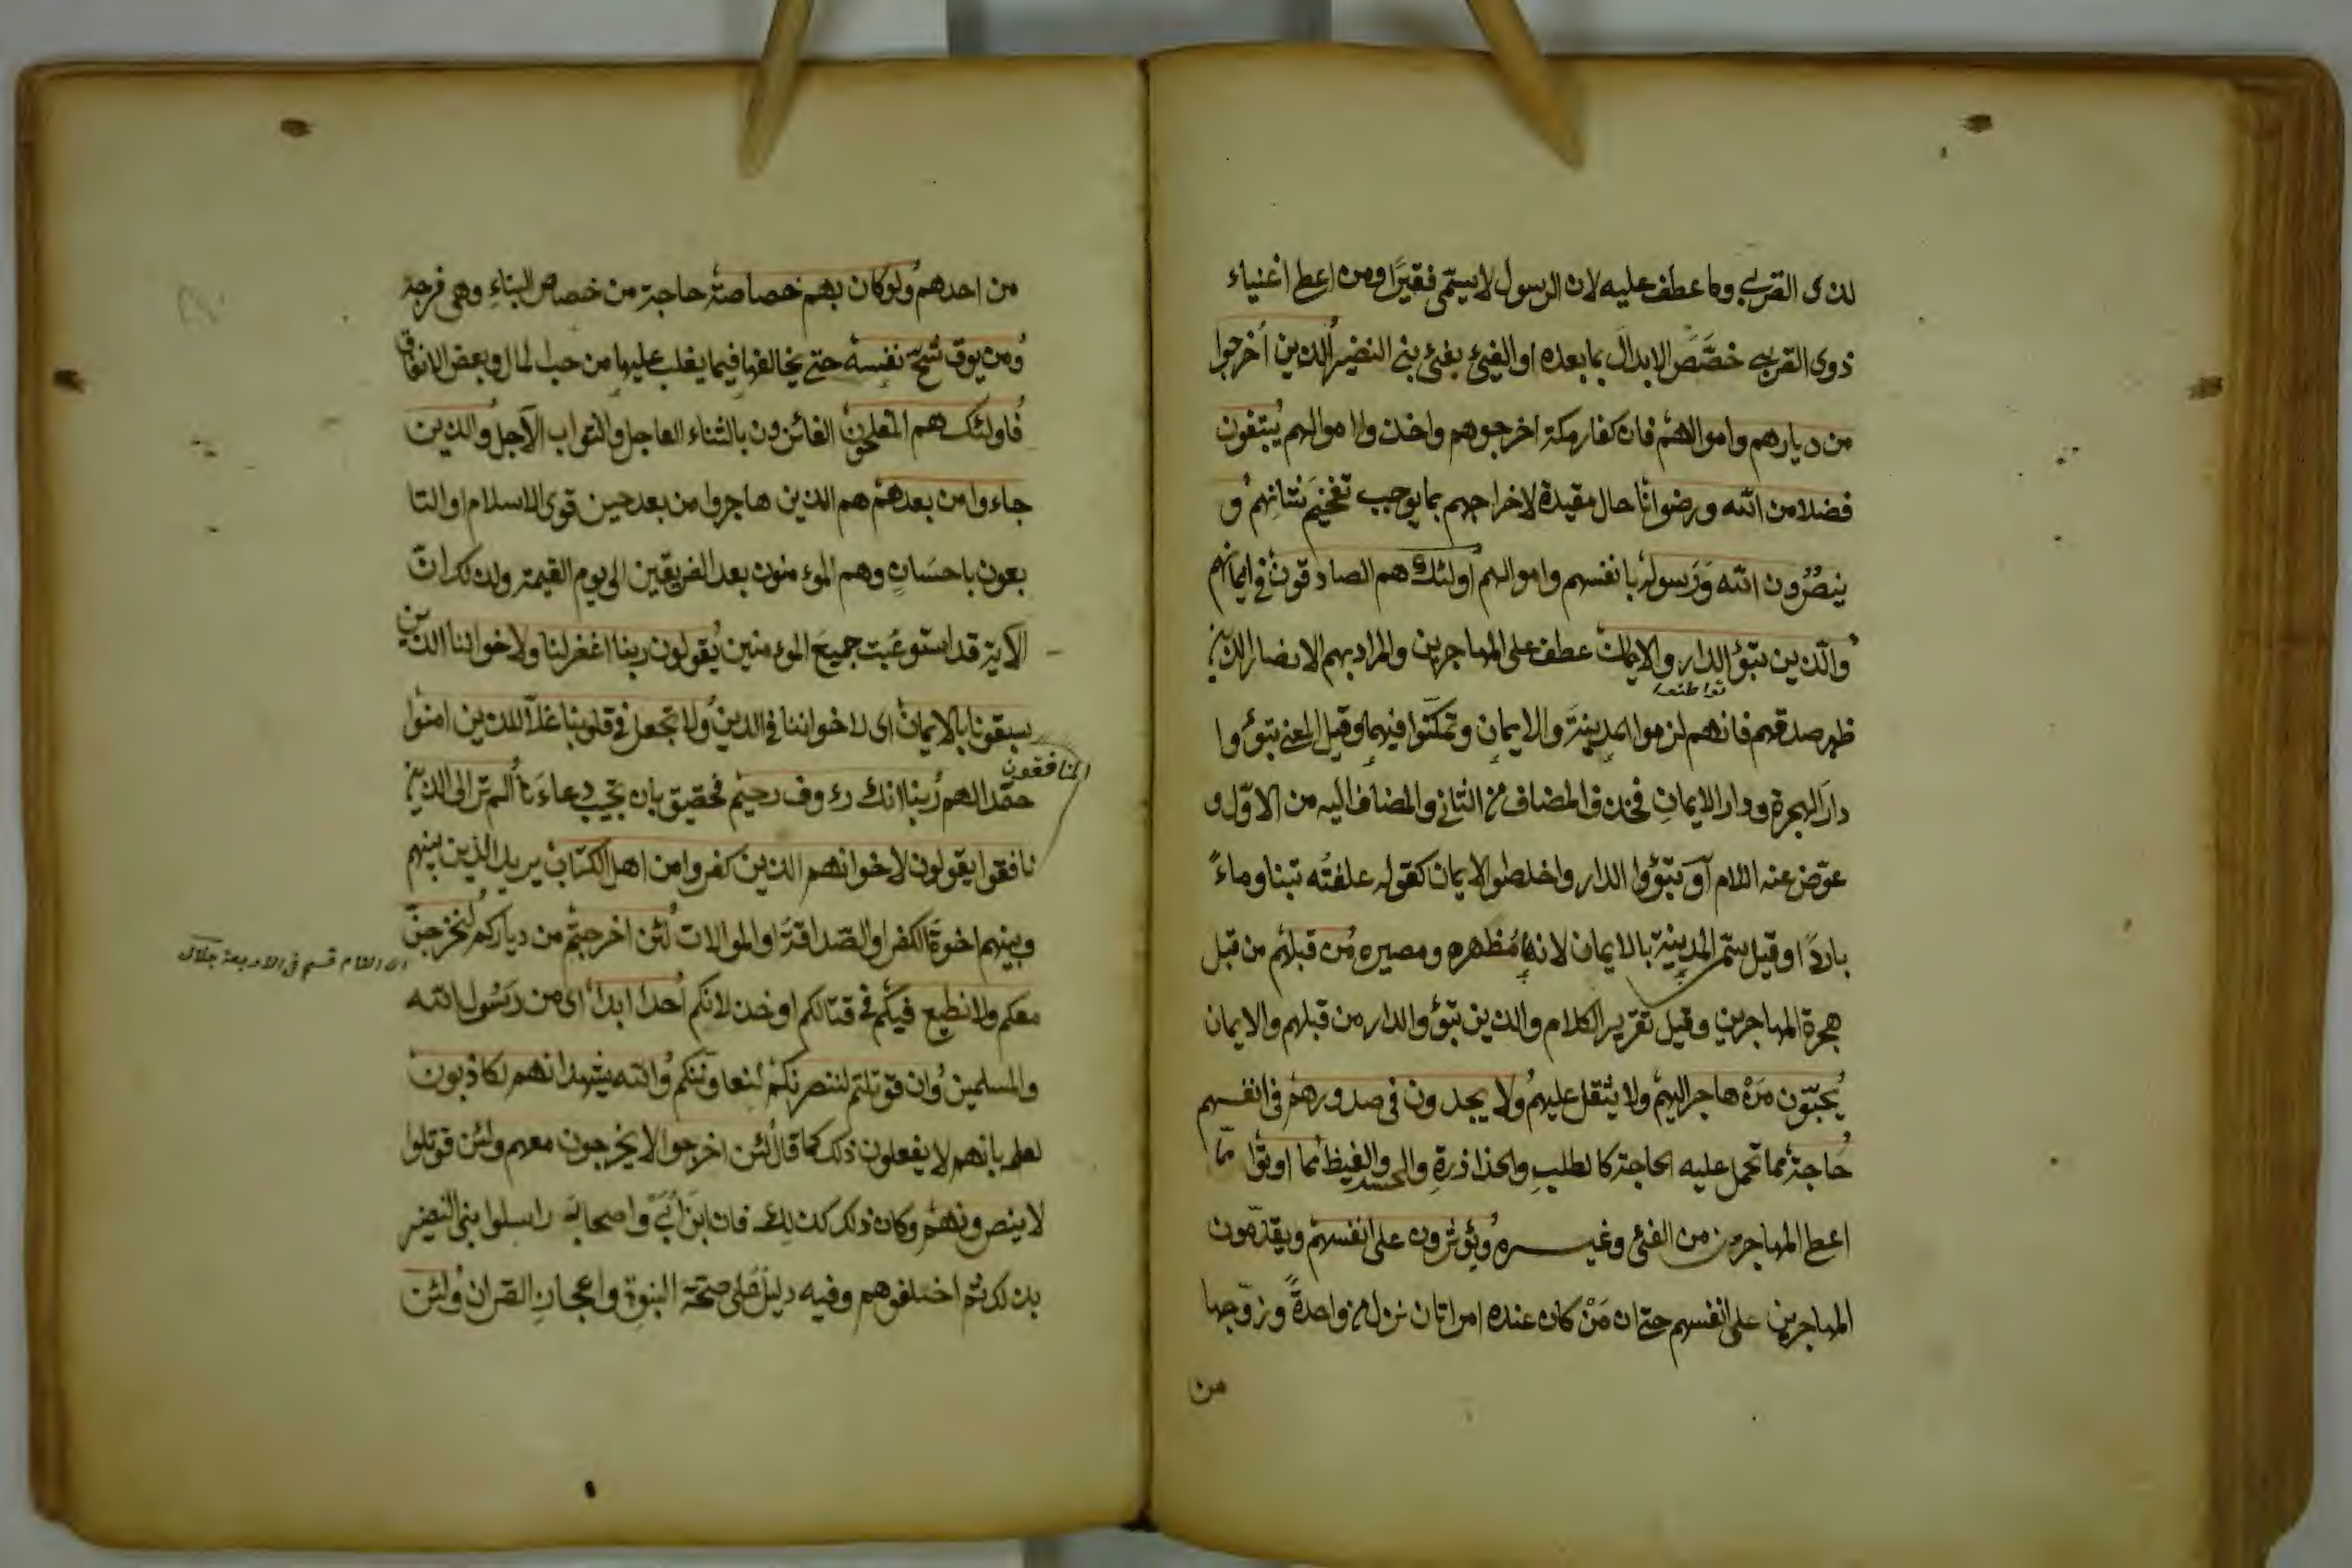 لذى القربى وما عطف عليه لان الرسول لا يسمّى فقيرًا ومن اعطى اغنياء
ذوى القربى خصّص الابدال بما بعده او الفيئ بفئ بنى النضير الذين أخرجوا
من ديارهم واموالهم فان كفار مكة اخرجوهم واخذوا اموالهم يبتغون
فضلا من الله ورضوانا حال مقيدة لاخراجهم بما يوجب تفخيم شانهم و
ينصُرون الله وَرَسوله بانفسهم واموالهم اولئك هم الصادقون فى ايمانهم
والّذين تبؤ الدار والايمان عطف على المهاجرين والمراد بهم الانصار الذين
توطنوا
ظهر صدقهم فانهم لزموا المدينةَ والايمانِ وتمكّنوا فيهما وقيل المعنى تبؤوا
دارَ الهجرة ودار الايمانِ فحذف المضاف من الثانى والمضاف اليه من الاوّل و
عوّض عنه اللام آو تبوّؤا الدار واخلصوا الايمان كقوله علفتُه تبنا وماءً
باردًا وقيل سمّى المدينة بالايمان لانها مُظهره ومصيره من قبلهم من قبل
هجرة المهاجرين وقيل تقرير الكلام والذين تبؤوالدار من قبلهم والايمان
يُحبّون مَنْ هاجر اليهم ولا يثقل عليهم ولا يجدون فى صدورهم فى انفسهم
حاجة مما تحمل عليه الحاجة كالطلبِ والحذاذرةِ والحسد والغيظ مما اوتوا ممّا
اعطى المهاجرين من الفئ وغيره ويؤثرون على انفسهم ويقدّمون
المهاجرين على انفسهم حتى ان مَنْ كان عنده امراتان نزل من واحدةً وزوّجها
من
من احدهم ولوكان بهم خصاصة حاجة من خصاص البناءِ وهى فرجة
ومن يوق شحّ نفسه حتى يخالفها فيما يغلب عليها من حب المال وبعض الانفاق
فاولئك هم المفلحون الفائزون بالثناء العاجل والثواب الآجل والذين
جاءوا من بعدهم هم الذين هاجروا من بعد حين قوى الاسلام او التا
بعون باحسَانٍ وهم الموءمنون بعد الفريقين الى يوم القيمة ولذلك ان
الآية قد استوعبت جميعَ الموءمنين يقولون ربنا اغفر لنا ولاخواننا الذين
سبقونا بالايمان اى لاخواننا فى الدين ولا تجعل فى قلوبنا غلاّ للذين امنوا
حقدا لهم ربنا انك رءوف رحيم فحقيق بان تجيب دعاءَنا ألم تر الى الذين
المنافقون
نافقوا يقولون لاخوانهم الذين كفروا من اهل الكتاب يريد الذين بينهم
وبينهم اخوة الكفر او الصّداقة او الموالات لئن اخرجتم من دياركم لنخرجنّ
معكم ولا نطيع فيكم فى قتالكم او خذلانكم أحدا ابدا اى من رَسُول الله
والمسلمين وان قوتلتم لننصرنكم لنعاوننّكم والله يشهد انهم لكاذبون
لعلمه بانهم لا يفعلون ذلك كما قال لئن اخرجوا لا يخرجون معهم ولئن قوتلوا
لا ينصرونهم وكان ذلك كذلك فان ابنَ اُبَىّ واصحابه راسلوا بنى النضير
بذلك ثم اخلفوهم وفيه دليلٌ على صحّة النبوةِ واعجازِ القران ولئن